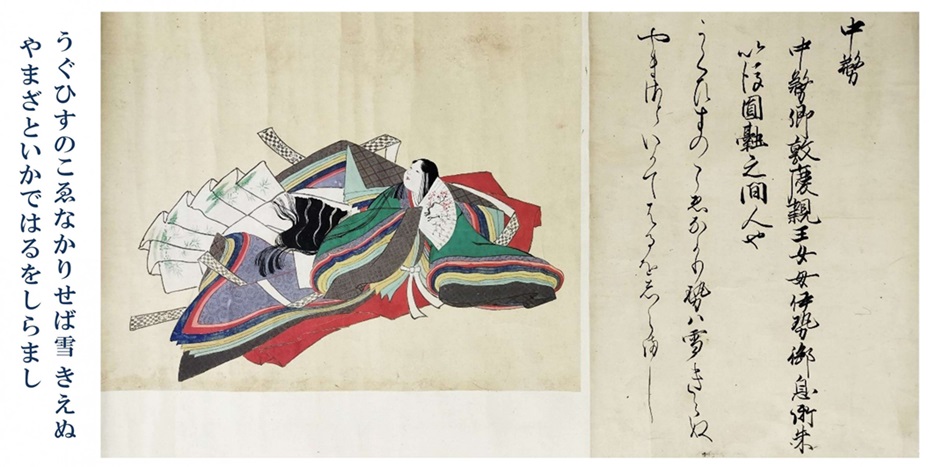 中務
中務卿敦慶親王女母伊勢御息所朱
以後圓融之間人也
うくひすのこゑなかりせハ雪きえぬ
やまさといかてはるをしらまし
うぐひすのこゑなかりせば雪きえぬ
やまざといかではるをしらまし